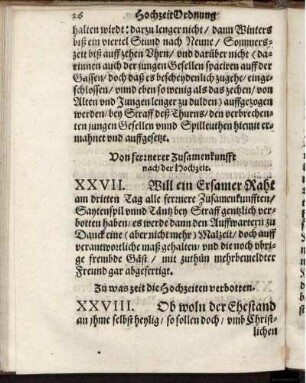 26 HochzeitOrdnung
halten wirdt: darzu lenger nicht / dann Winters
biß ein viertel Stund nach Neune / Sommers-
zeit biß auff zehen Uhrn / und darüber nicht (da-
rinnen auch der jungen Gesellen spaciren auff der
Gassen / doch daß es bescheydenlich zugehe / einge-
schlossen / unnd eben so wenig als das zechen / von
Alten und Jungen lenger zu dulden) auffgezogen
werden / bey Straff deß Thurns / den verbrechen-
ten jungen Gesellen unnd Spilleuthen hiemit er-
mahnet und auffgesetzt.
Von fernerer Zusamenkunfft
nach der Hochzeit.
XXVII. Will ein Ersamer Raht
am dritten Tag alle fernere Zusamenkunfften /
Saytenspil unnd Täntz bey Straff gentzlich ver-
botten haben / es werde dann den Auffwartern zu
Danck eine (aber nicht mehr) Malzeit / doch auff
verantwortliche maß gehalten / und die noch vbri-
ge frembde Gäst / mit zuthün mehrbemeldter
Freund gar abgefertigt.
Zu was zeit die Hochzeiten verbotten.
XXVIII. Ob woln der Ehestand
an ihme selbst heylig / so sollen doch / umb Christ-
lichen